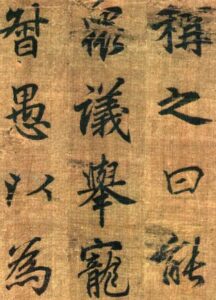 稱之曰能
眾議舉寵
督愚以為